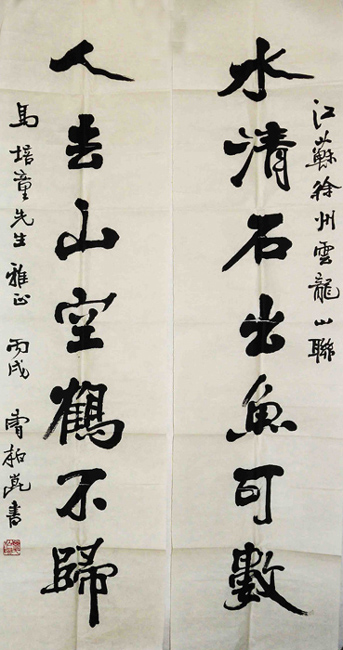 江蘇徐州雲龍山聯
水清石出魚可數
人去山空鶴不歸
馬培童先生雅正 丙戌 曹柏崑書